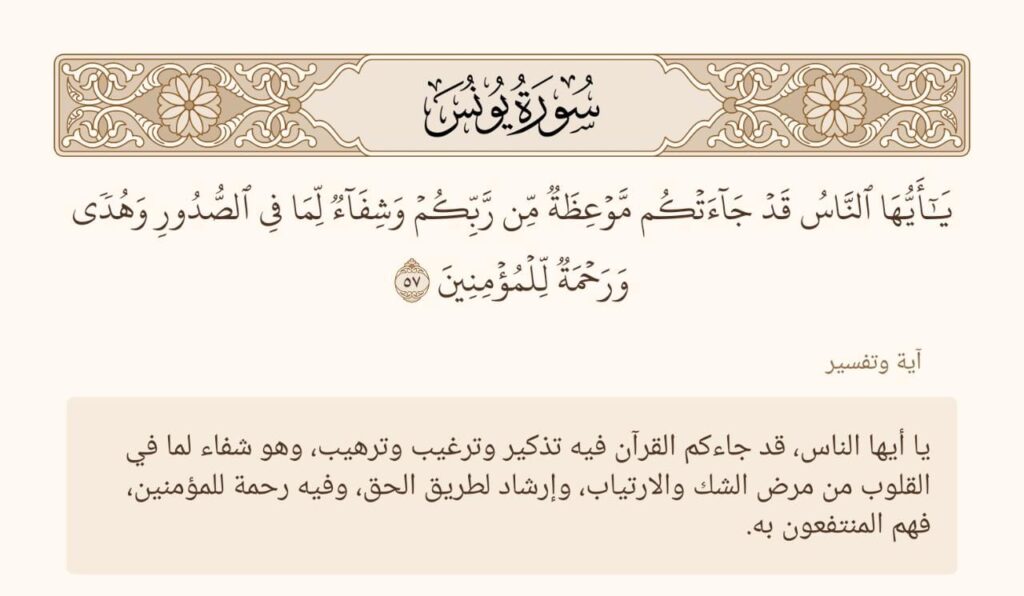 سُورَةُ يُونُسَ
يَـٰٓأَيُّهَا ٱلنَّاسُ قَدۡ جَآءَتۡكُم مَّوۡعِظَةٞ مِّن رَّبِّكُمۡ وَشِفَآءٞ لِّمَا فِي ٱلصُّدُورِ وَهُدٗى
وَرَحۡمَةٞ لِّلۡمُؤۡمِنِينَ ٥٧
آية وتفسير
يا أيها الناس، قد جاءكم القرآن فيه تذكير وترغيب وترهيب، وهو شفاء لما في
القلوب من مرض الشك والارتياب، وإرشاد لطريق الحق، وفيه رحمة للمؤمنين،
فهم المنتفعون به.